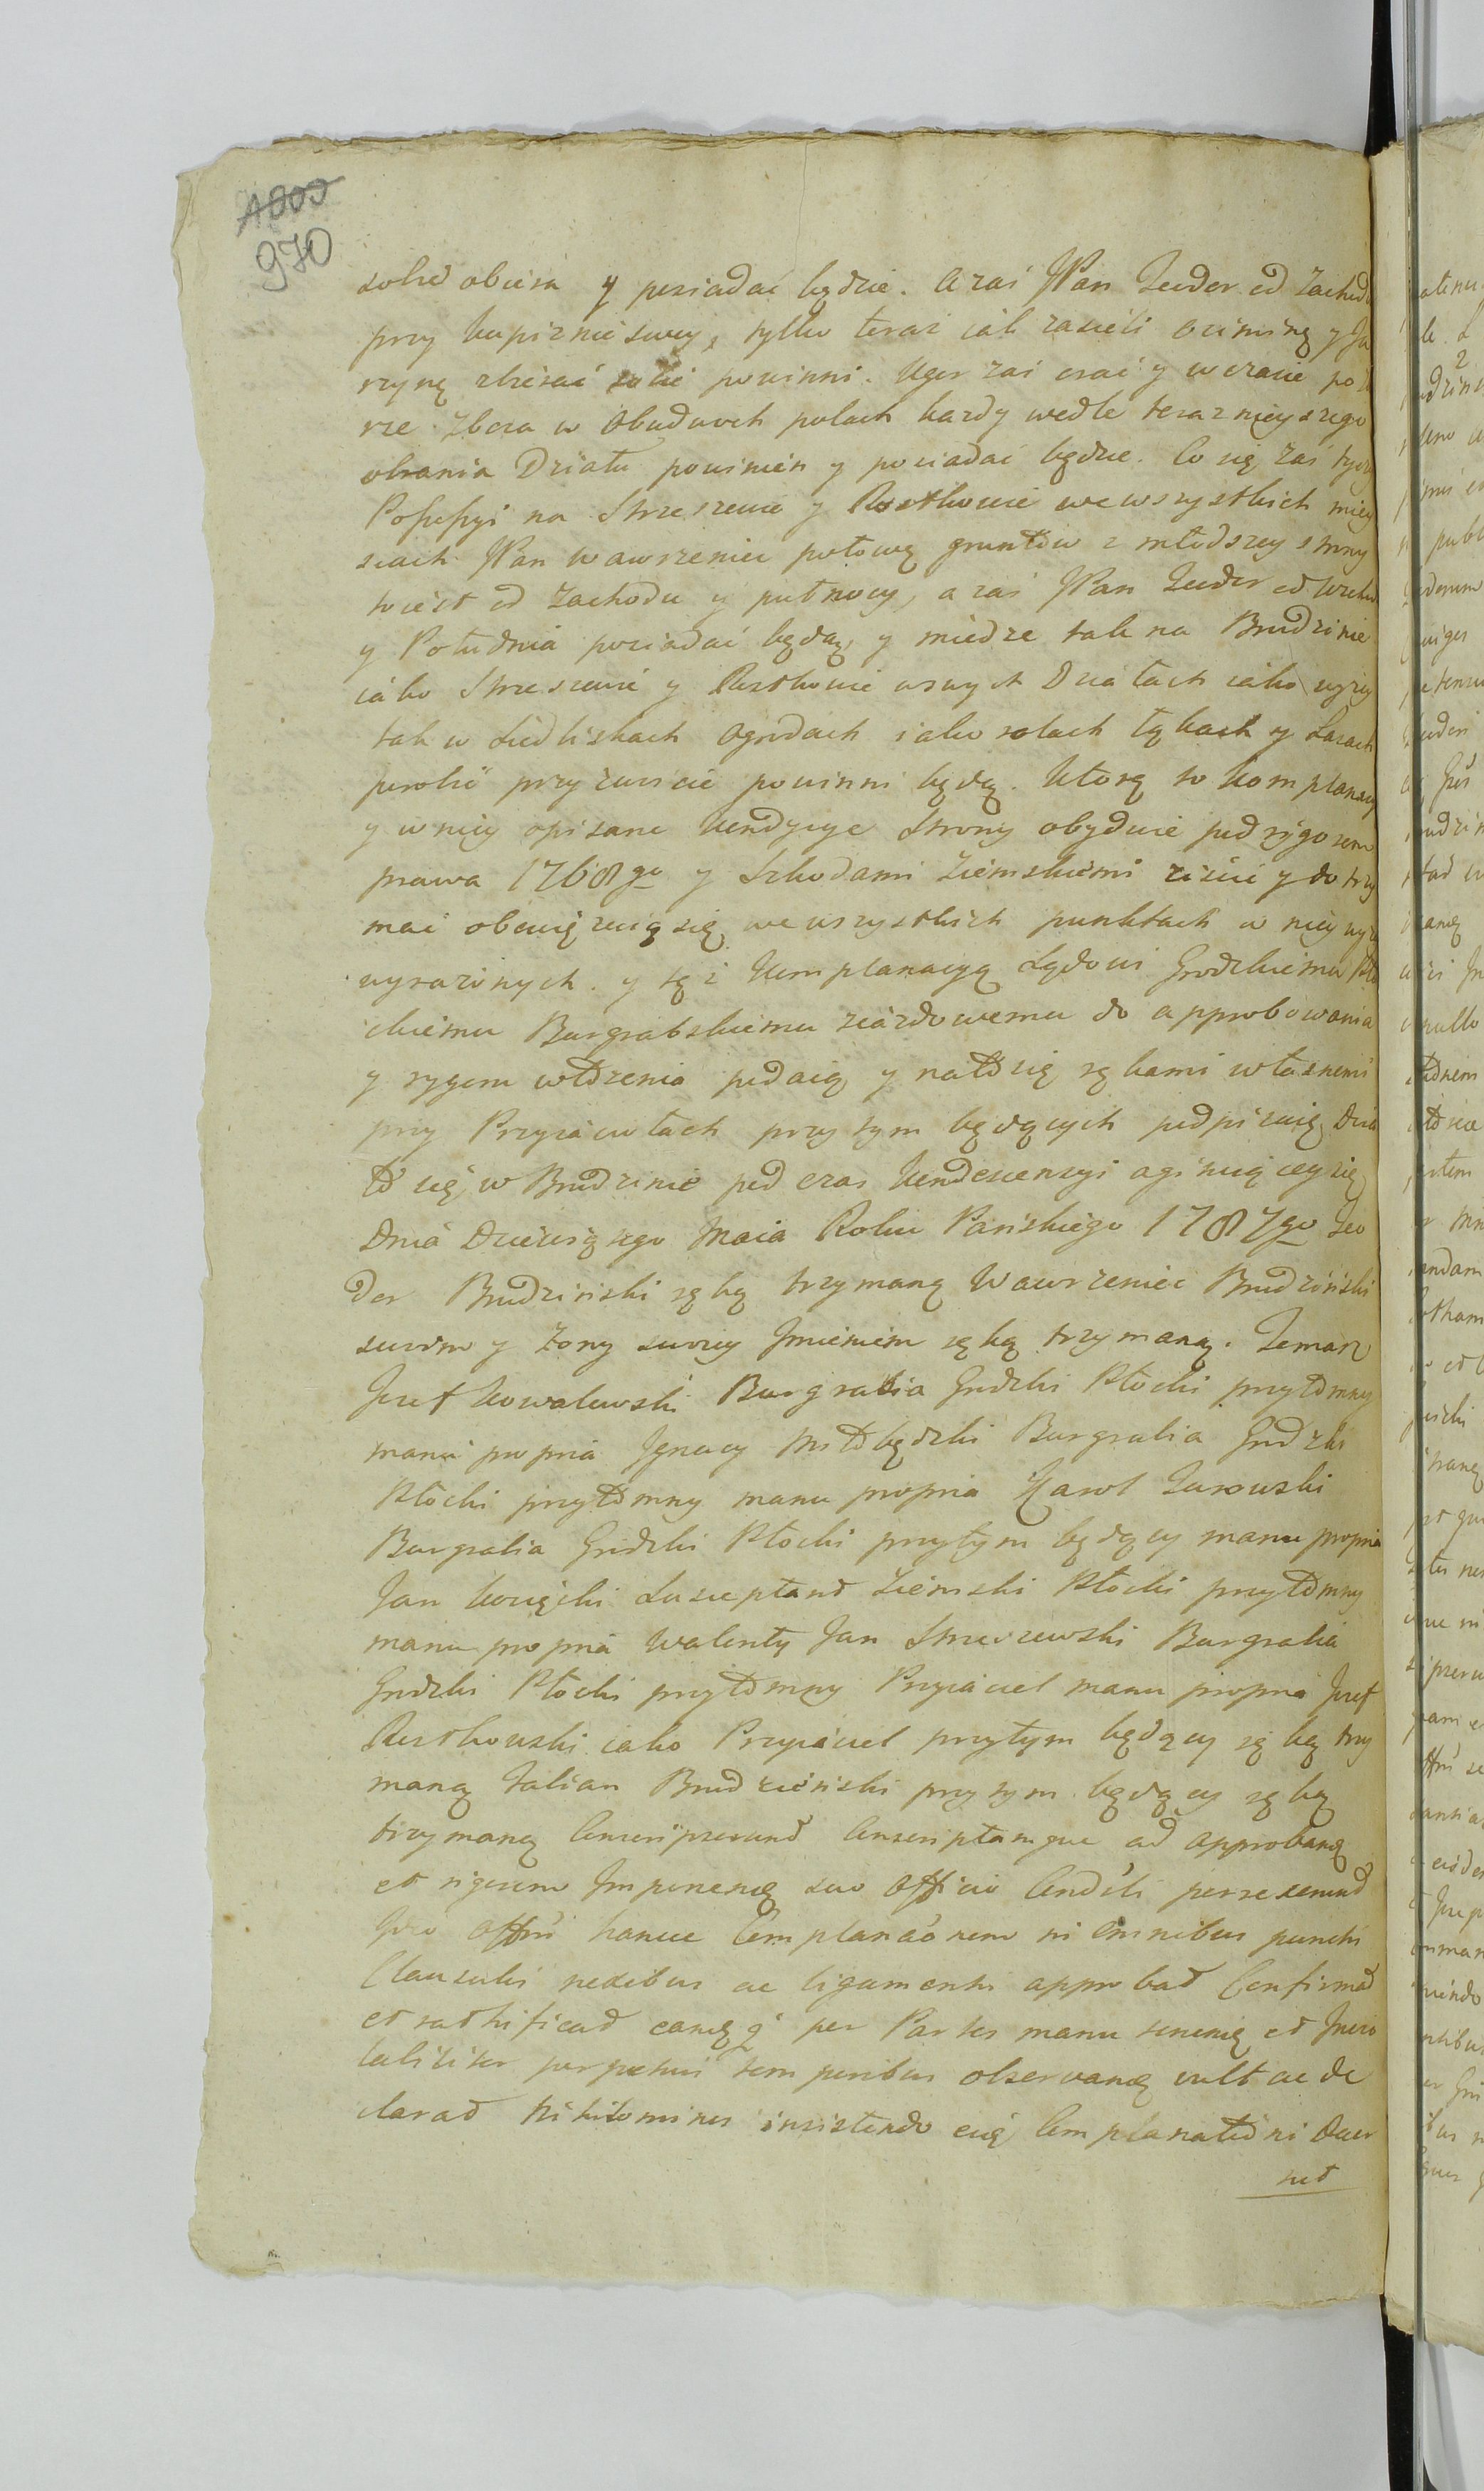 1000
970
sobie obiera y posiadać będzie. A zaś WPan Teodor od Zachodu
przy kupiznie swey, tylko teraz iak zasieli oziminę y Ja
rzynę zbierać sobie powinni. Ugor zaś orać y w czasie po
rze zbera w Obudwoch polach kazdy wedle teraznieyszego
obrania Działu powinien y posiadać będzie. Co się zaś tycze
Possessyi na Strzeszewie y Rostkowie we wszystkich miey
scach WPan Wawrzeniec połowę gruntow z młodszey strony
to iest od Zachodu y pułnocy, a zaś WPan Teodor od Wschodu
y Południa posiadać będą, y miedze tak na Brudzinie
iako Strzeszewie y Rostkowie w swych Działach iako wyzey
tak w Siedliskach Ogrodach iako rolach łąkach y Lasach
porobić przyzwoicie powinni będą. Ktorą to komplanacyą
y w niey opisane kondycye Strony obydwie pod rygorem
prawa 1768go y Szkodami Ziemskiemi ziścić y dotrzy
mać obowięzuią się we wszystkich punktach w niey wyzey
wyrazonych. y tęż Komplanacyą Sądowi Grodzkiemu Pło
ckiemu Burgrabskiemu ziazdowemu do approbowania
y rygoru włożenia podaią y na to się rękami własnemi
przy Przyiaciołach przy tym będących podpisuią Dzia
ło się w Brudzinie pod czas Kondescensyi aginuiącey się
Dnia Dziesiątego Maia Roku Pańskiego 1787go Teo
dor Brudziński ręką trzymaną Wawrzeniec Brudziński
swoim y Zony swoiey Imieniem ręką trzymaną.
Jozef Kowalewski Burgrabia Grodzki Płocki przytomny
manu propria Ignacy Burgrabia Grodzki
Płocki przytomny manu propria Karol Zurowski
Burgrabia Grodzki Płocki przytym będący manu propria
Jan Susceptant Ziemski Płocki przytomny
manu propria Walenty Jan Burgrabia
Grodzki Płocki przytomny Przyiaciel manu propria Jozef
Rostkowski iako Przyiaciel przytym będący ręką trzy
maną Brudzieński przy tym będący ręką
trzymaną Conscripserunt Conscriptamque ad approband
et rigorem Imponend suo Officio
Quo Offm hance Complanaonem in omnibus punctis
Clausulis nexibus ac ligamentis approbat Confirmat
et rathificat eamq per Partes manu tenend et Invio
labiliter perpetuis temporibus observand vult ac de
clarat Nihilominus insistendo eid Complanationi Decer
net